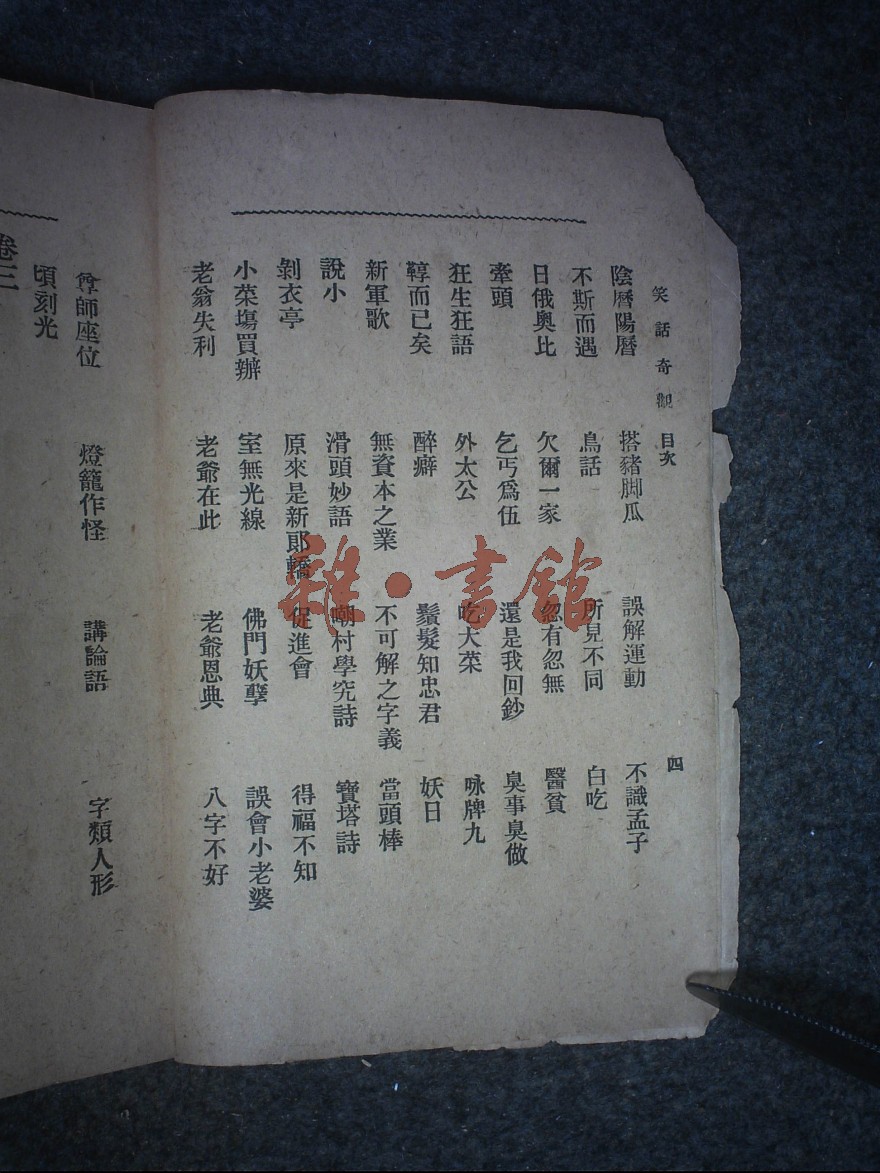 笑話奇觀 目次 四
陰曆陽曆 搭豬脚瓜 誤解運動 不識孟子
不斯而遇 鳥話 所見不同 白吃
日俄奧比 欠爾一家 忽有忽無 醫貧
牽頭 乞丐爲伍 還是我回鈔 臭事臭做
狂生狂語 外太公 吃大菜 咏牌九
鞟而已矣 醉癖 鬚髮知忠君 妖日
新軍歌 無資本之業 不可解之字義 當頭棒
說小 滑頭妙語 嘲村學究詩 寶塔詩
剝衣亭 原來是新郞轎 促進會 得福不知
小菜塲買辦 室無光線 佛門妖孽 誤會小老婆
老翁失利 老爺在此 老爺恩典 八字不好
尊師座位 燈籠作怪 講論語 字類人形
頃刻光
卷三
雜·書館